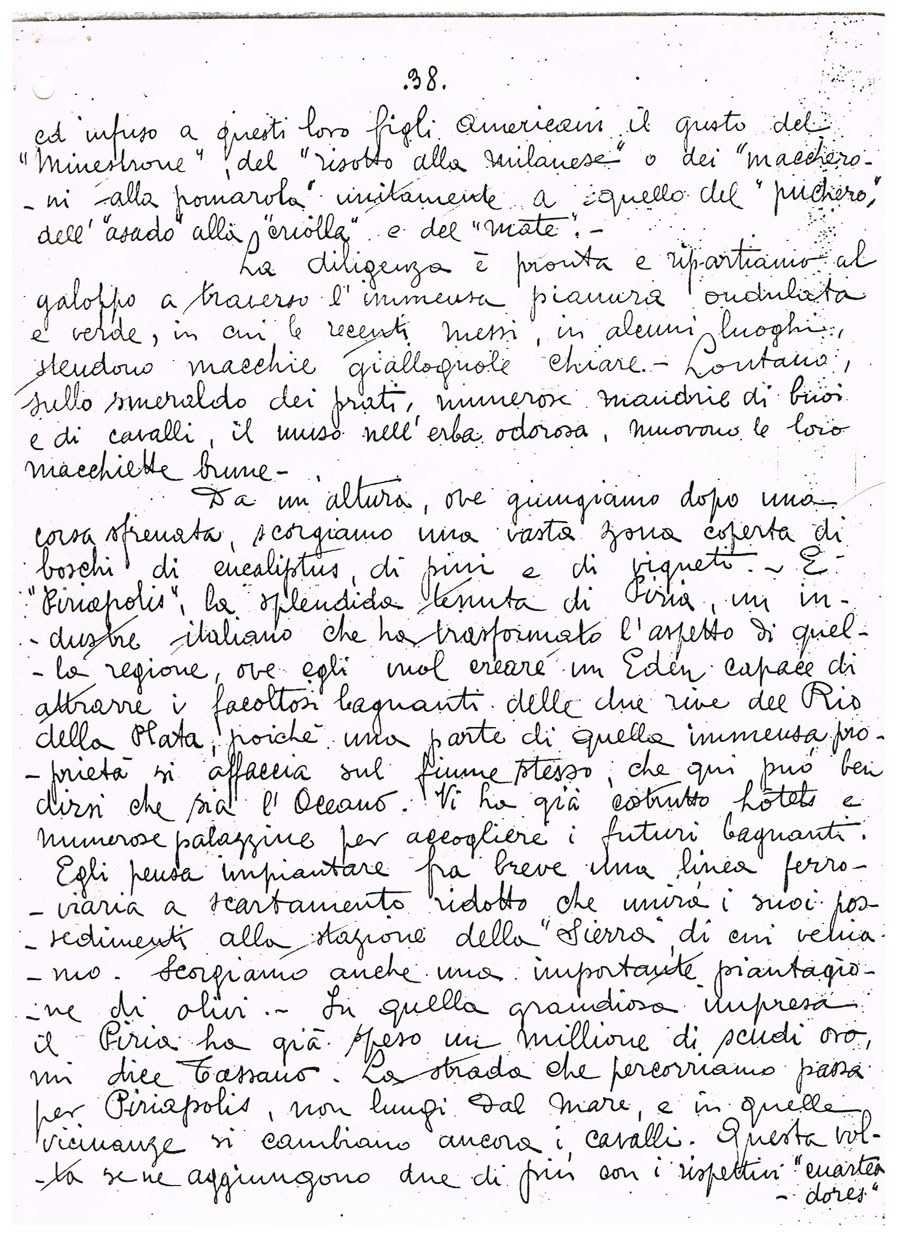 .38.
ed infuso a questi loro figli americani il gusto del
"Minestrone", del "risotto alla milanese" o dei "macchero-
- ni alla pomarola" unitamente a quello del "puchero",
dell'"asado" alla "criolla" e del "mate".-
La diligenza è pronta e ripartiamo al
galoppo a traverso l'immensa pianura ondulata
e verde, in cui le recenti messi, in alcuni luoghi,
stendono macchie giallognole chiare.- Lontano,
sullo smeraldo dei prati, numerose mandrie di buoi
e di cavalli, il muso nell'erba odorosa, muovono le loro
macchiette brune-
Da un'altura, ove giungiamo dopo una
corsa sfrenata, scorgiamo una vasta zona coperta di
boschi di eucaliptus, di pini e di vigneti.- È
"Piriapolis", la splendida tenuta di Piria, un in-
- dustre italiano che ha trasformato l'aspetto di quel-
- la regione, ove egli vuol creare un Eden capace di
attrarre i facoltosi bagnanti delle due rive del Rio
della Plata, poichè una parte di quella immensa pro-
- prietà si affaccia sul fiume stesso, che qui può ben
dirsi che sia l'Oceano. Vi ha già costrutto hôtels e
numerose palazzine per accogliere i futuri bagnanti.
Egli pensa impiantare fra breve una linea ferro-
- viaria a scartamento ridotto che unirà i suoi pos-
- sedimenti alla stazione della "Sierra", di cui venia-
- mo. Scorgiamo anche una importante piantagio-
- ne di olivi.- In quella grandiosa impresa
il Piria ha già speso un millione di scudi oro,
mi dice Tassano. La strada che percorriamo passa
per Piriapolis, non lungi dal mare, e in quelle
vicinanze si cambiano ancora i cavalli. Questa vol-
- ta se ne aggiungono due di più con i rispettivi "cuartea
- dores"